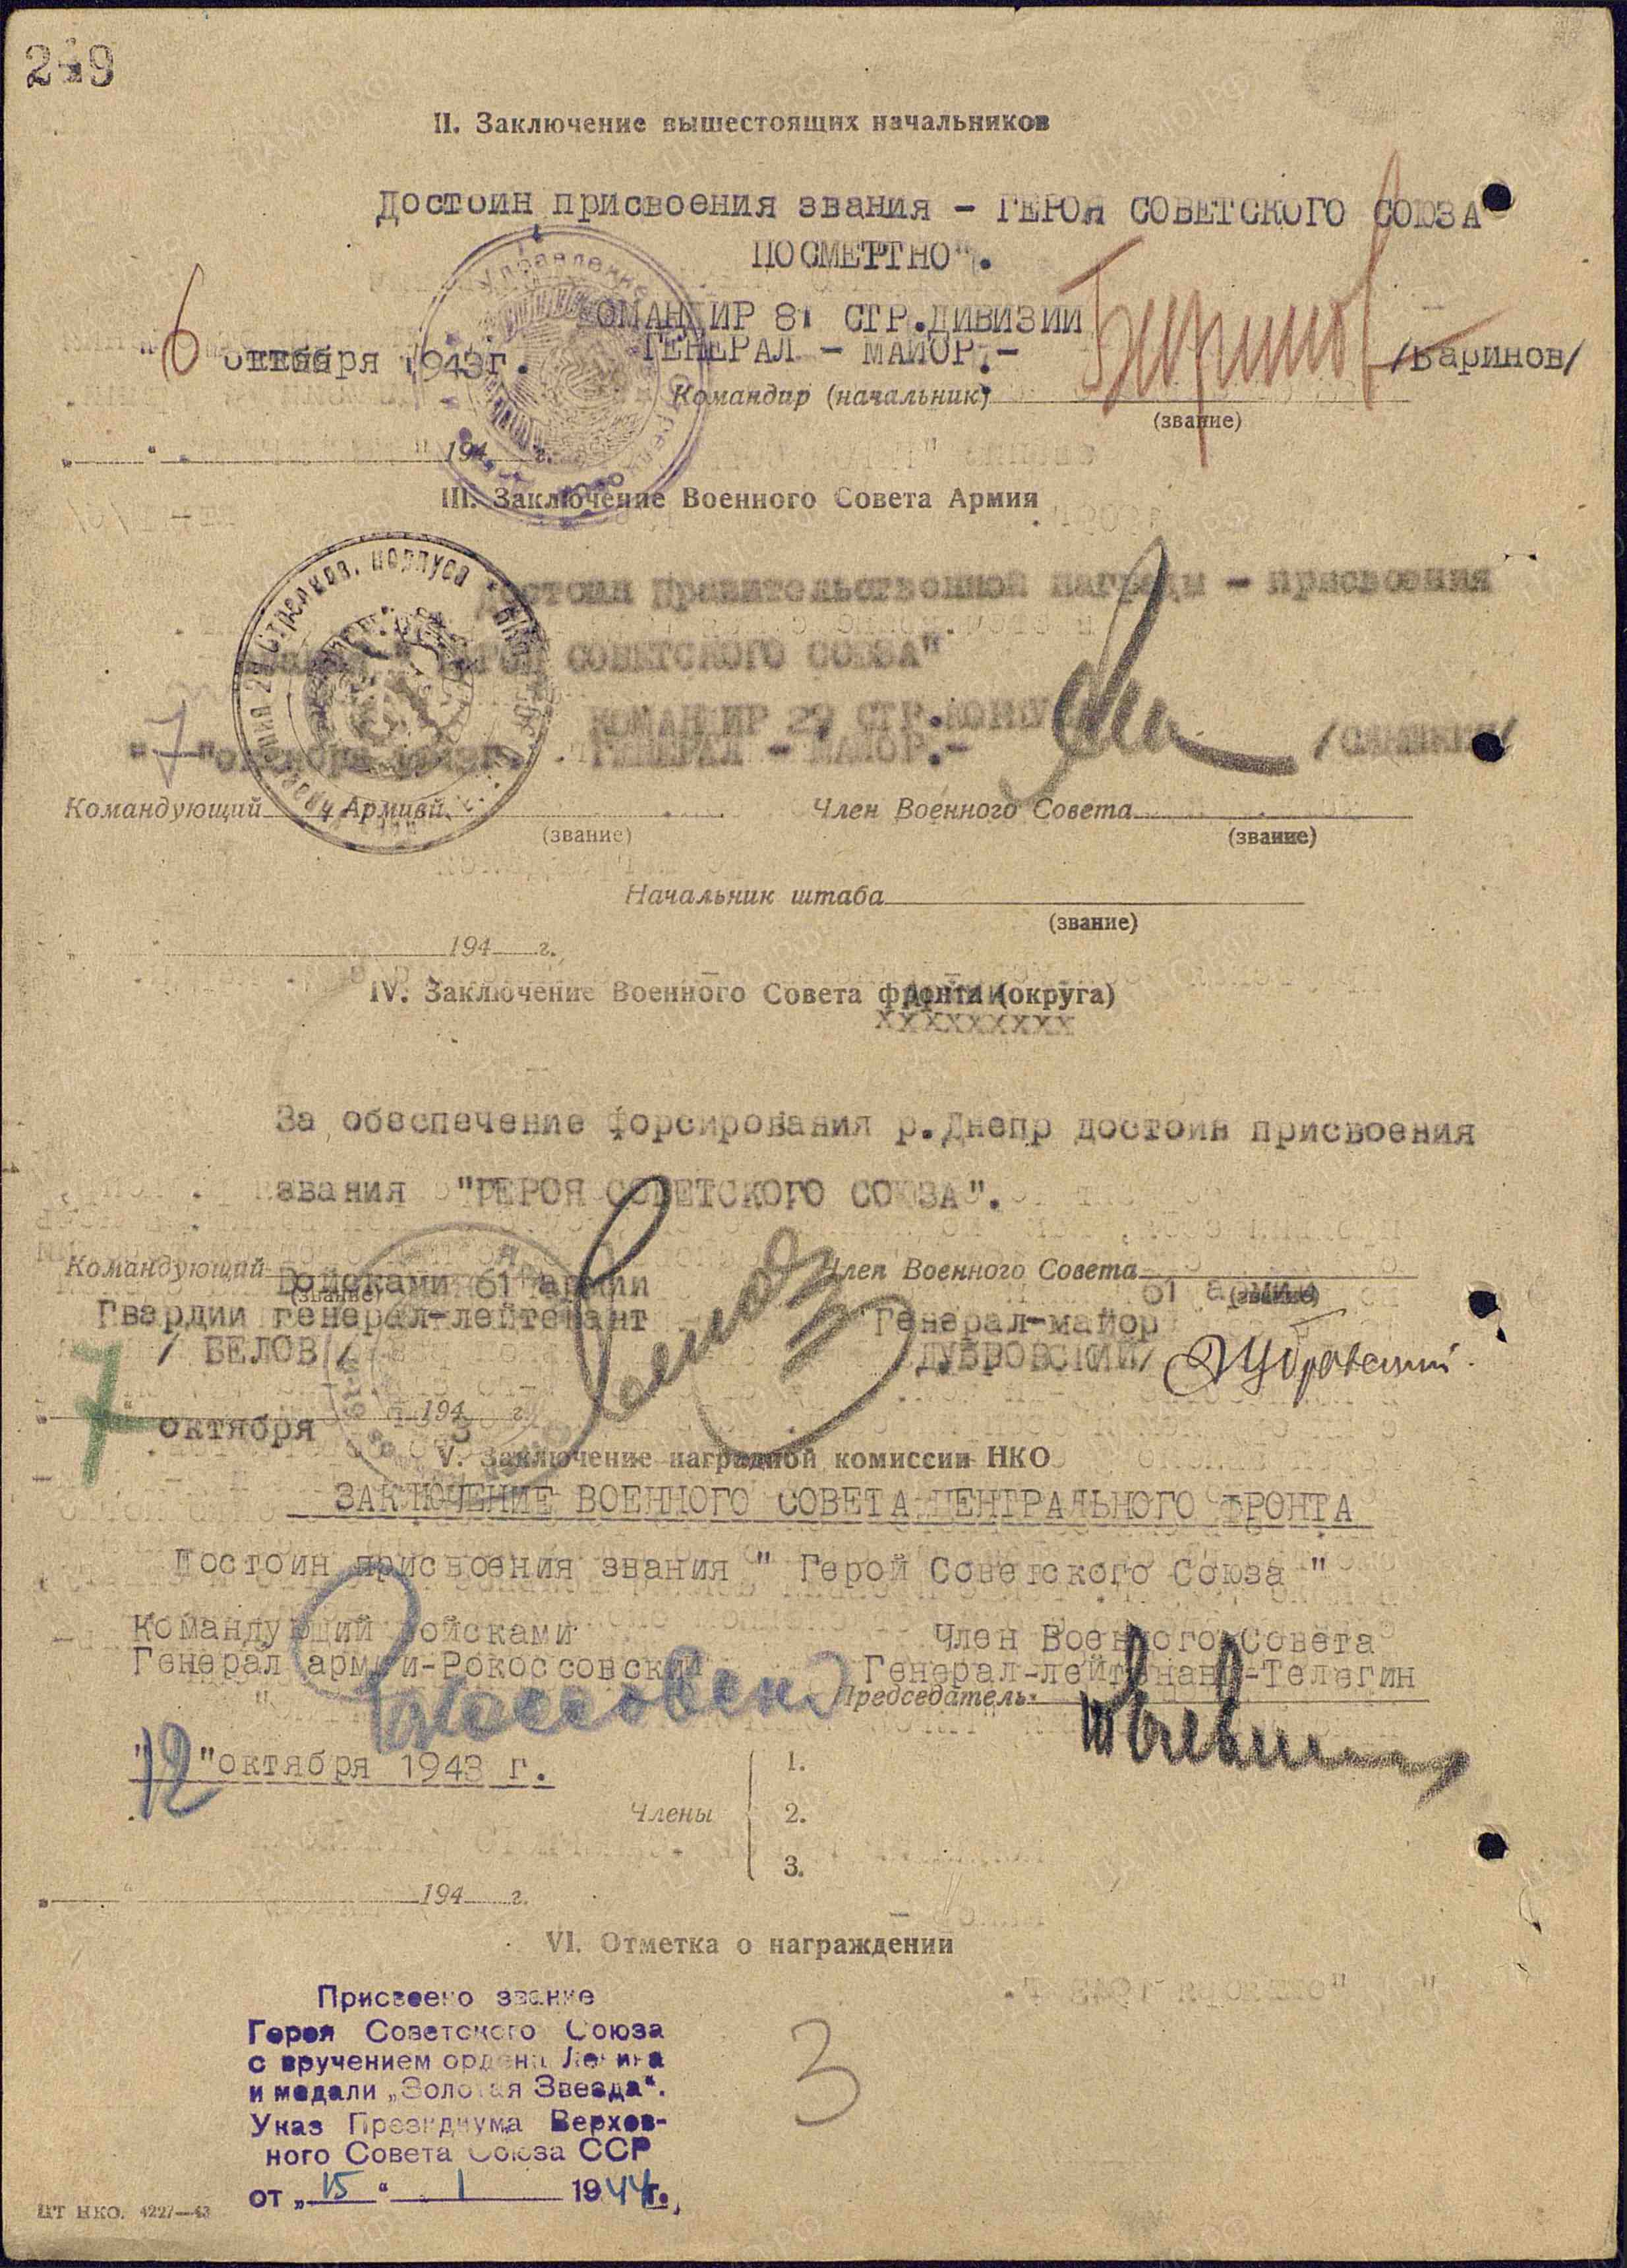 II. Заключение вышестоящих начальников
Достоин присвоения звания - ГЕРОЯ СОВЕТСКОГО СОЮЗА
ПОСМЕРТНО".
КОМАНДИР 81 СТР.ДИВИЗИИ
ГЕНЕРАЛ - МАЙОР:-
/Баринов/
6 октября 1943г.
Командир (начальник)
(звание)
194 г.
III. Заключение Военного Совета Армия
Достоин Правительственной награды - присвоения
звания "ГЕРОЯ СОВЕТСКОГО СОЮЗА"
КОМАНДИР 29 СТР.КОРПУСА
ГЕНЕРАЛ - МАЙОР.-
"7" октября 1943г.
Командующий Армией
(звание)
Член Военного Совета
(звание)
Начальник штаба
(звание)
194 г.
IV. Заключение Военного Совета фронта (округа)
ххххххххх
За обеспечение форсирования р.Днепр достоин присвоения
звания "ГЕРОЯ СОВЕТСКОГО СОЮЗА".
Командующий Войсками 61 армии
(звание)
Гвардии генерал-лейтенант
/ БЕЛОВ /
Член Военного Совета
61 армии
(звание)
Генерал-майор
ДУБРОВСКИЙ/
7 октября 1943 г.
V. Заключение наградной комиссии НКО
ЗАКЛЮЧЕНИЕ ВОЕННОГО СОВЕТА ЦЕНТРАЛЬНОГО ФРОНТА
Достоин присвоения звания " Герой Советского Союза "
Командующий Войсками
Генерал армии-Рокоссовский
Член Военного Совета
Генерал-лейтенант-Телегин
Председатель
"12" октября 1943 г.
Члены
1.
2.
3.
194 г.
VI. Отметка о награждении
Присвоено звание
Героя Советского Союза
с вручением ордена Ленина
и медали „Золотая Звезда“.
Указ Президиума Верхов-
ного Совета Союза ССР
от „15“ 1 1944г.
3
ЦТ НКО. 4227—43